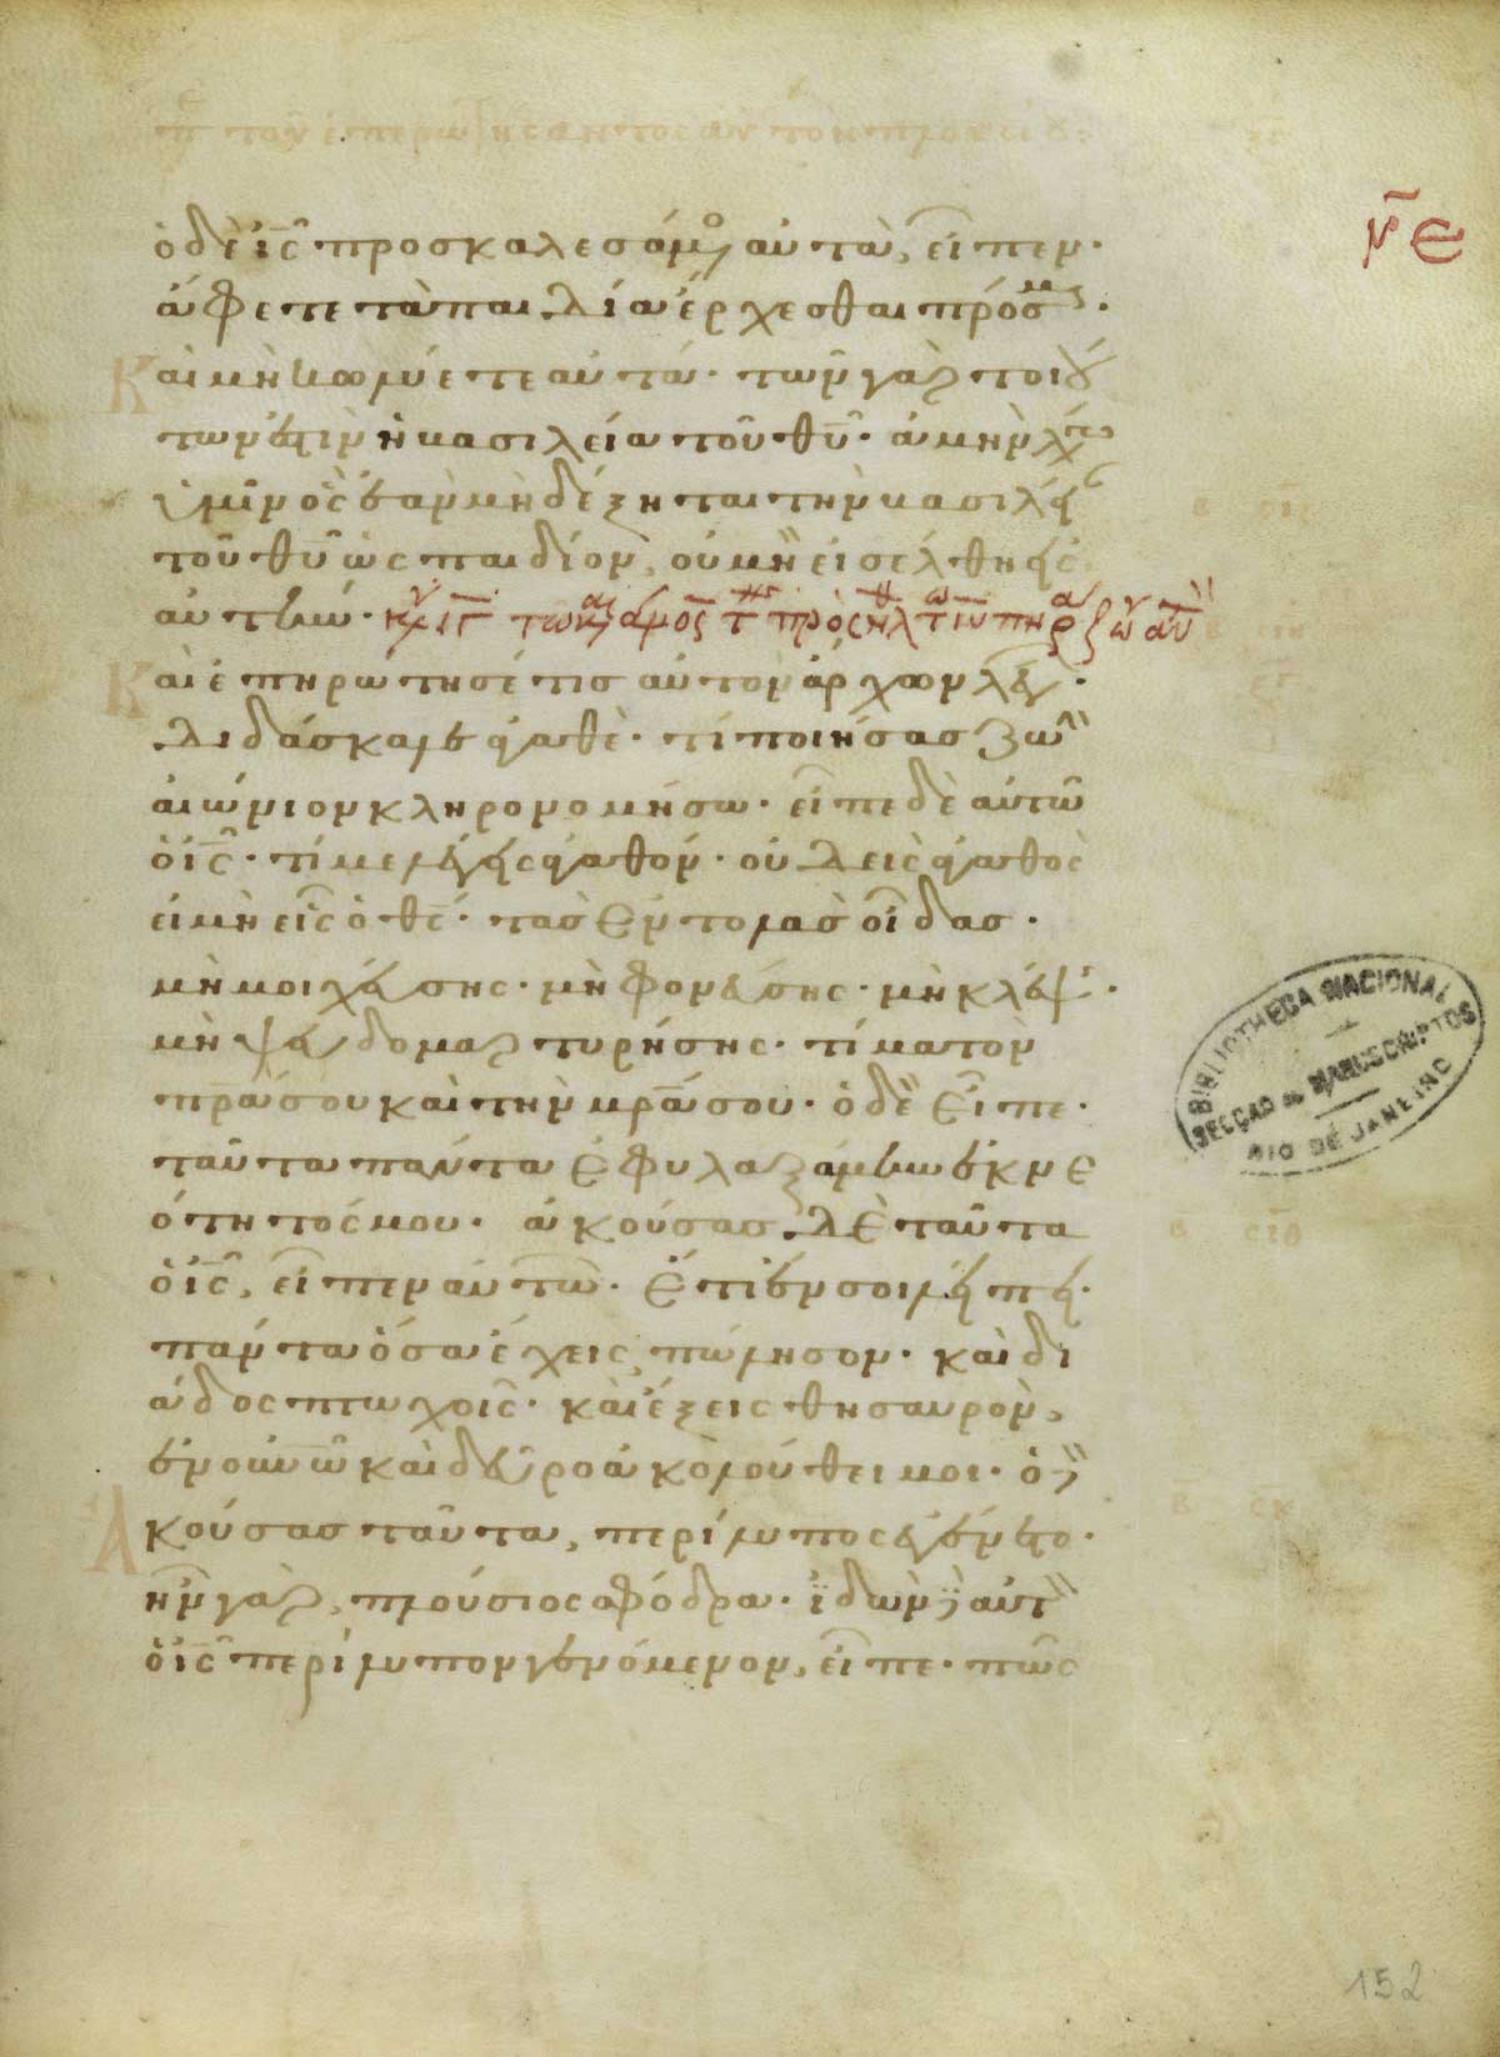 ὁ δὲ ις προσκαλεσάμενος αὐτὰ, εἶπεν·
ἄφετε τὰ παιδία ἔρχεσθαι πρός με·
Καὶ μὴ κωλύετε αὐτά· τῶν γὰρ τοιού
των ἐστιν ἡ βασιλεία τοῦ θυ· ἀμὴν λέγω
ὑμῖν ὃς ἐὰν μὴ δέξηται τὴν βασιλείαν
τοῦ θυ ὡς παιδίον, οὐ μὴ εἰσέλθη εἰς
αὐτήν·
νε
Καὶ ἐπηρώτησέ τις αὐτὸν ἄρχων λέγων·
διδάσκαλε ἀγαθὲ· τί ποιήσας ζωὴν
αἰώνιον κληρονομήσω· εἶπε δὲ αὐτῶ
ὁ ις· τί με λέγεις ἀγαθόν· οὐδεὶς ἀγαθὸς
εἰ μὴ εἷς ὁ θς· τὰς ἐντολὰς οἶδας·
μὴ μοιχεύσης· μὴ φονεύσης· μὴ κλέψης·
μὴ ψευδομαρτυρήσης· τίμα τὸν
πρα σου καὶ τὴν μρα σου· ὁ δὲ εἶπε·
ταῦτα πάντα ἐφυλαξάμην ἐκ νε
ότητός μου· ἀκούσας δὲ ταῦτα
ὁ ις, εἶπεν αὐτῶ· ἔτι ἕν σοι λείπει·
πάντα ὅσα ἔχεις πώλησον· καὶ δι
άδος πτωχοῖς· καὶ ἕξεις θησαυρὸν,
ἐν οὐνῶ καὶ δεῦρο ἀκολούθει μοι· ὁ δὲ
Ακούσας ταῦτα, περίλυπος ἐγένετο·
ἦν γὰρ, πλούσιος σφόδρα· ἰδὼν δὲ αὐτὸν
ὁ ις περίλυπον γενόμενον, εἶπε· πῶς
BIBLIOTHECA NACIONAL
SECÇÃO de MANUSCRIPTOS
RIO DE JANEIRO
152